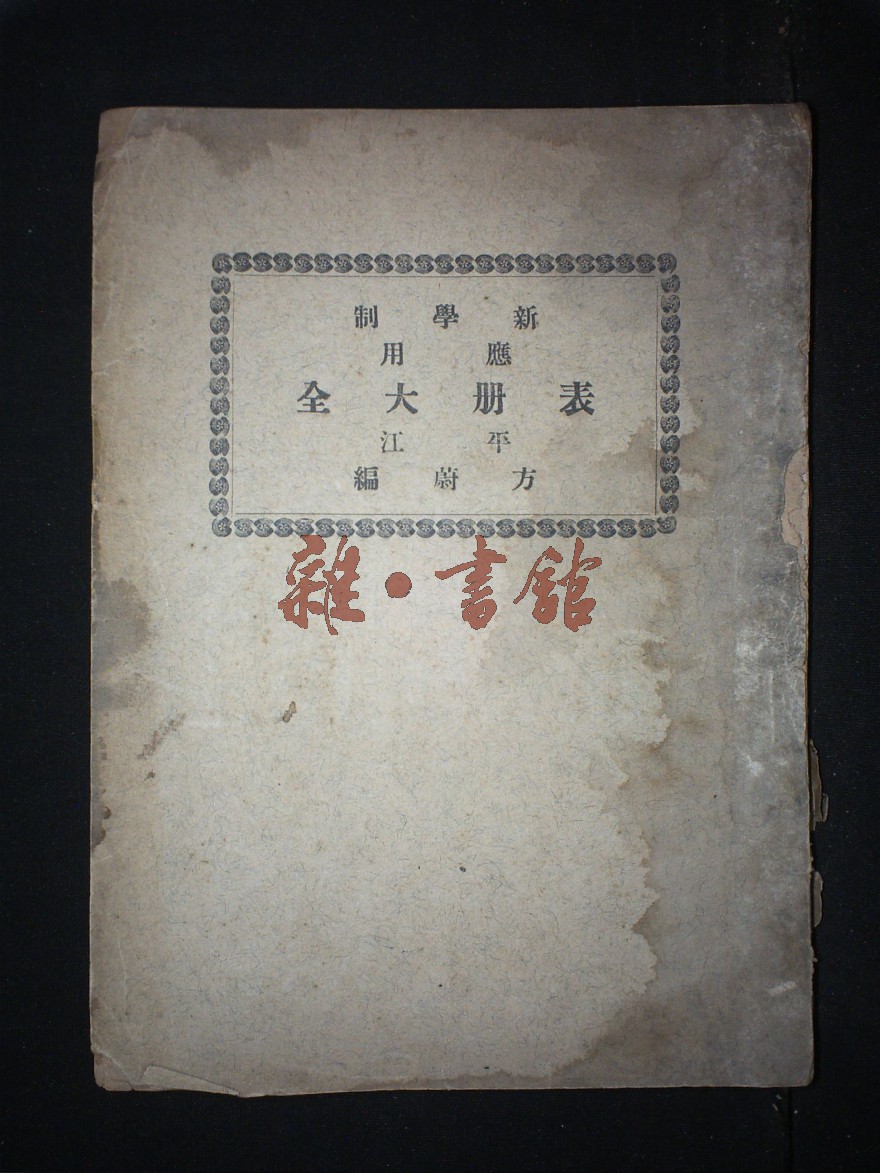 新學制
應用
表册大全
平江
方蔚編
雜·書館